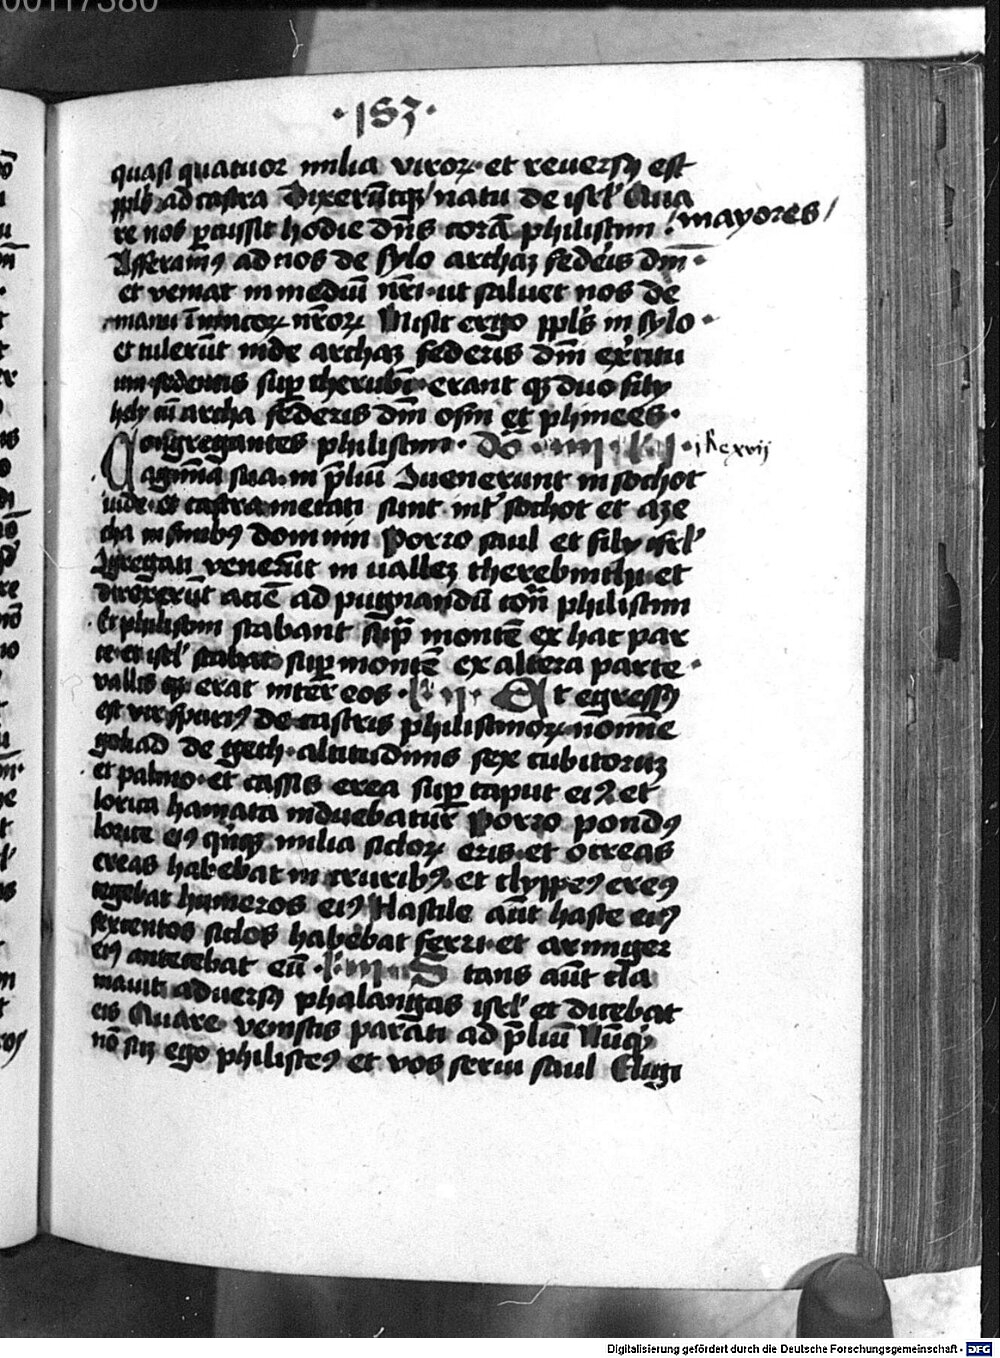 00117380
·183·
quasi quatuor milia viroꝝ· et reversꝰ est
ppl̄s ad castra Dixerūtqꝫ / natu de isrl̄ Qua
re nos ꝑcussit hodie dn̄s corā philistim / mayores /
Afferamꝰ ad nos de sylo archaꝫ federis dn̄i ·
et veniat in mediū nr̄i · ut saluet nos de
manu īimicoꝝ nr̄oꝝ Misit ergo ppl̄s in sylo ·
et tulerūt inde archaꝫ federis dn̄i exercitu
um · sedentis suꝑ cherubī · erant qꝫ duo filij
hely cū archa federis dn̄i ofni et phinees ·
Congregantes philistim · Dō · iiij · l · j · j Re xvij
agmina sua · in p̄liū ꝯvenerunt in sochot
iude · et castra metati sunt · int̄ sochot et aze
cha in finibꝰ dommin Porro saul et filij isrl̄
ꝯgregati venerūt in valleꝫ therebinthi · et
direxerūt aciē ad pugnandū cont̄ philistim
Et philistim stabant suꝑ montē ex hac par
te · et isrl̄ stabat suꝑ montē ex altera parte ·
vallis qꝫ erat inter eos · l · ij · Et egressꝰ
est vir spuriꝰ de castris philistinoꝝ nomine
goliad de geth · altitudinis sex cubitorum
et palmo · et cassis erea suꝑ caput eiꝰ et
lorica hamata induebatur Porro pondꝰ
lorice eiꝰ qn̄qꝫ milia sicloꝝ eris · et ocreas
ereas habebat in cruribꝰ · et clyppeꝰ ereꝰ
tegebat humeros eiꝰ Hastile aūt haste eiꝰ
sexcentos siclos habebat ferri · et armiger
eiꝰ antecebat eū · l · iij · Stans aūt cla
mavit adversꝰ phalangas isrl̄ et dicebat
eis Quare venistis parati ad p̄liū Nūqͥd
nō suꝫ ego philisteꝰ et vos servi saul Eligi
Digitalisierung gefördert durch die Deutsche Forschungsgemeinschaft - DFG